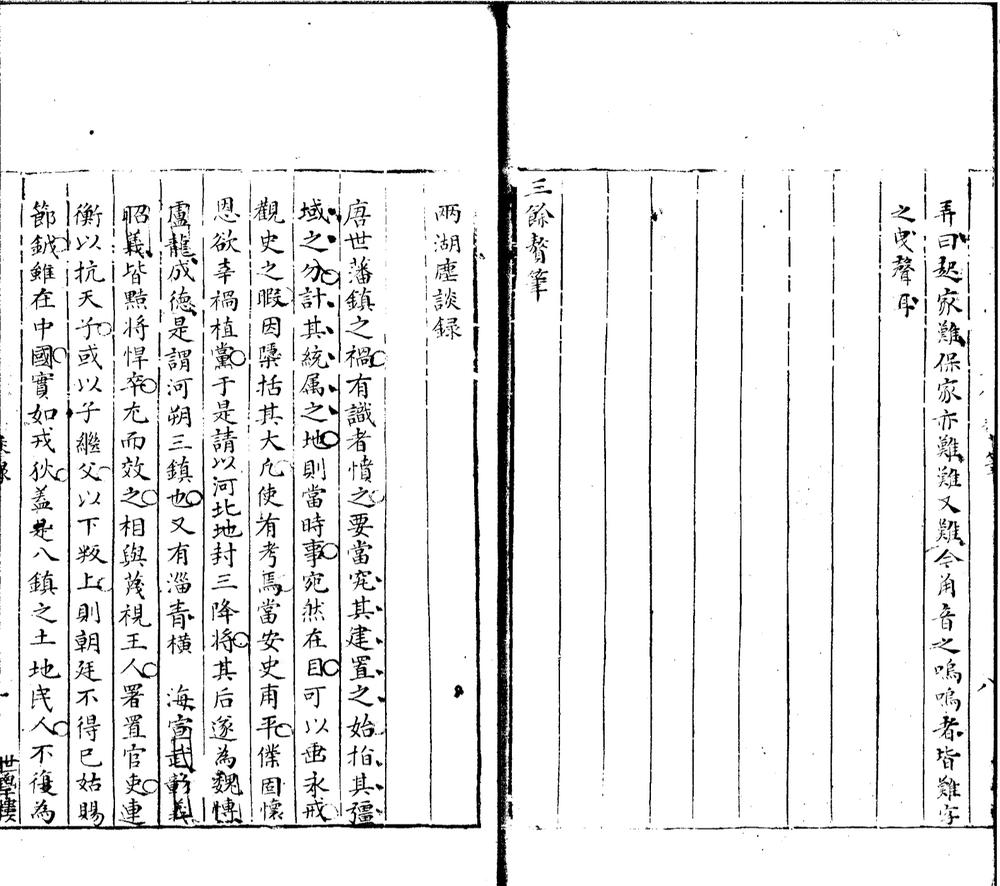 弄曰起家難保家亦難難又難今角音之嗚嗚者皆難字
之曳聲耳
三餘贅筆
兩湖塵談録
唐世藩鎮之禍有識者憤之要當究其建置之始指其疆
域之分計其統属之地則當時事宛然在目可以垂永戒
觀史之暇因櫽括其大凡使有考焉當安史甫平僕固懷
恩欲幸禍植黨于是請以河北地封三降将其后遂為魏博
盧龍成德是謂河朔三鎮也又有淄青橫 海宣武彰義
昭義皆黠将悍卒尤而效之相與蔑視王人署置官吏連
衡以抗天子或以子繼父以下叛上則朝廷不得已姑賜
節鉞雖在中國實如戎狄蓋是八鎮之土地民人不復為